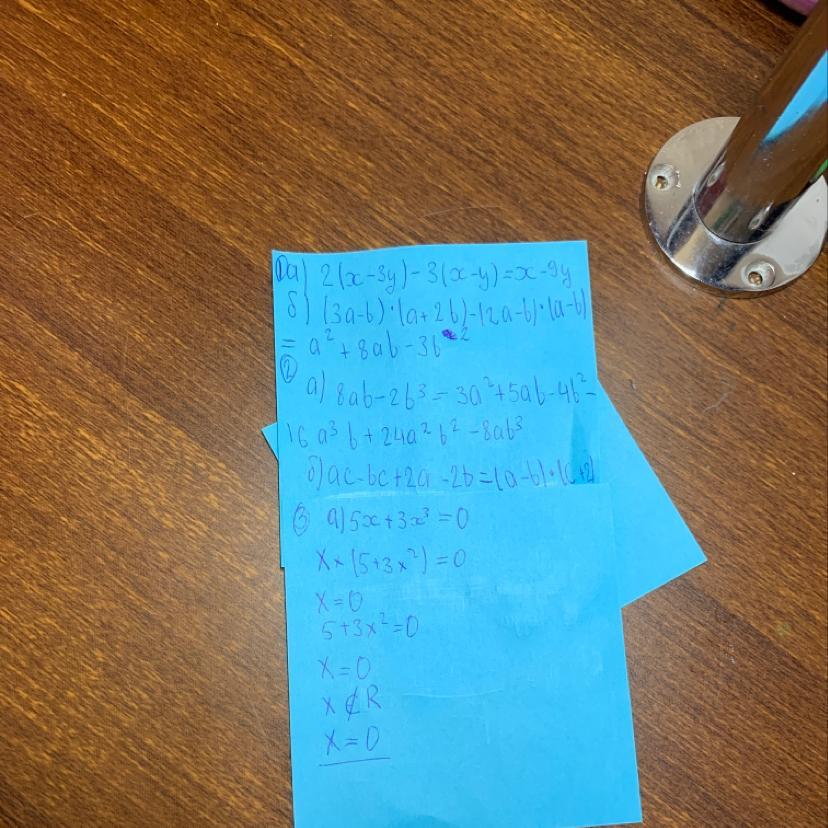 ① а) 2(x-3y)-3(x-y)=x-9y
б) (3a-b)·(a+2b)-(2a-b)·(a-b)
= a²+8ab-3b²
②
а) 8ab-2b³=3a²+5ab-4b²-
16a³b+24a²b²-8ab³
б) ac-bc+2a-2b=(a-b)·(c+2)
③ а) 5x+3x³=0
x×(5+3x²)=0
x=0
5+3x²=0
x=0
x∉R
x=0